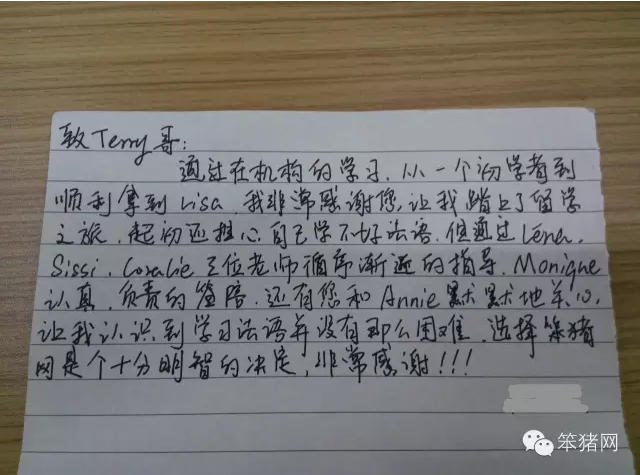 致Terry哥：
通过在机构的学习，从一个初学者到
顺利拿到visa，我非常感谢您，让我踏上了留学
之旅，起初还担心自己学不好法语，但通过Lena，
Sissi，Coralie三位老师循序渐进的指导，Monique
认真，负责的答陪，还有您和Annie默默地关心，
让我认识到学习法语并没有那么困难，选择笨猪
网是个十分明智的决定，非常感谢！！！
笨猪网